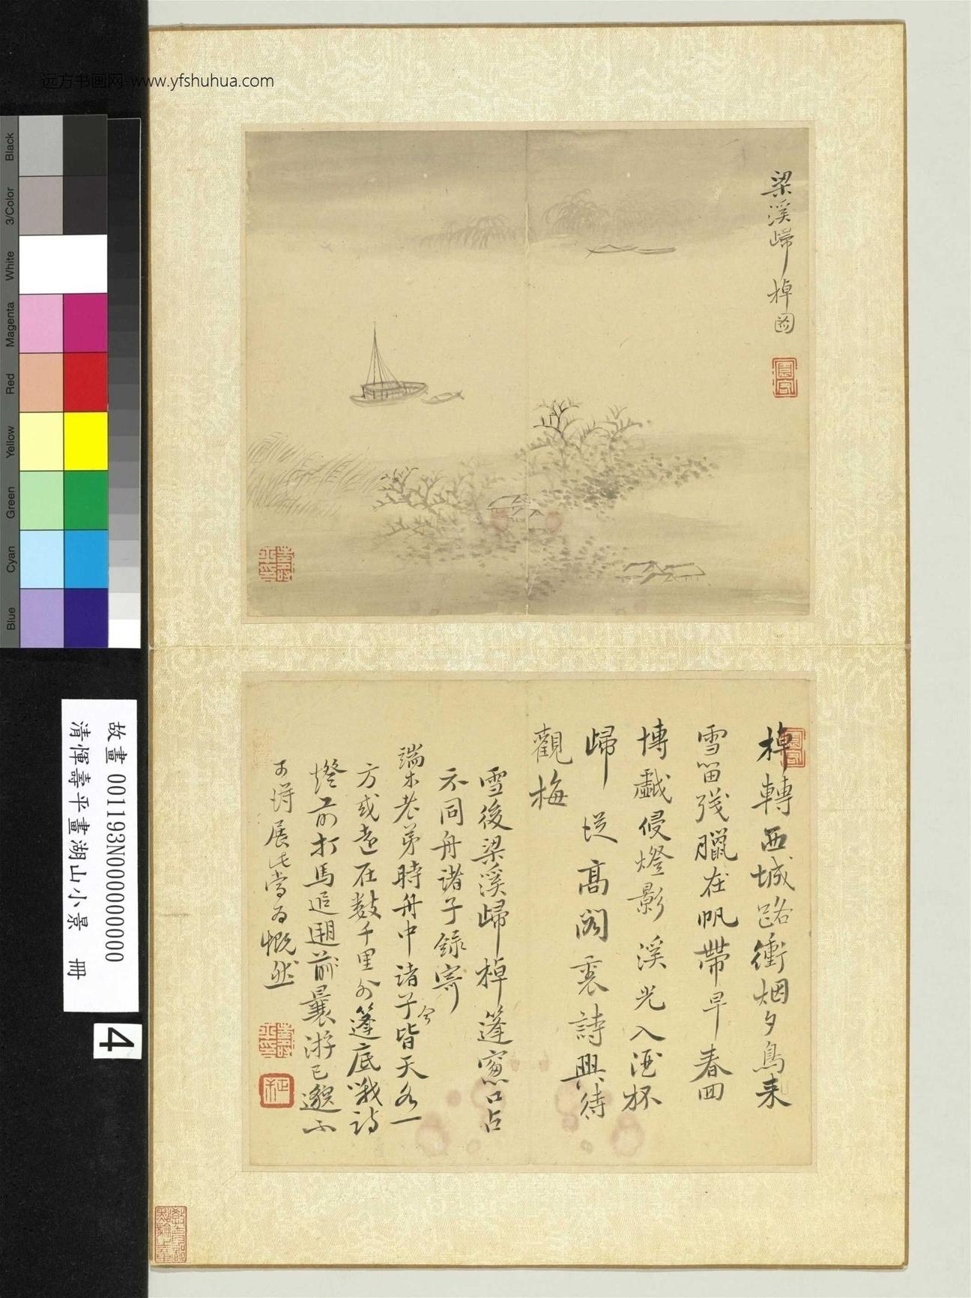 远方书画网 www.yfshuhua.com
Black
3/Color
White
Magenta
Red
Yellow
Green
Cyan
Blue
故畫 001193N000000000
清惲壽平畫湖山小景 冊
4
梁溪歸棹圖
棹轉西城路衝烟夕鳥來
雪留殘臘在帆帶早春回
博戲侵燈影溪光入酒杯
歸從高閣裏詩興待
觀梅
雪後梁溪歸棹篷窗口占
示同舟諸子錄寄
端木老弟時舟中諸子今皆天各一
方或遠在數千里外篷底戰詩
燈前打馬追遡前曩游已邈不
可得展此當為慨然